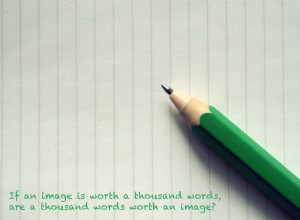 If an image is worth a thousand words,
are a thousand words worth an image?